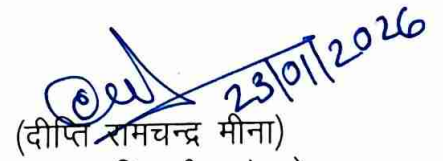 23/01/2026
(दीप्ति रामचन्द्र मीना)